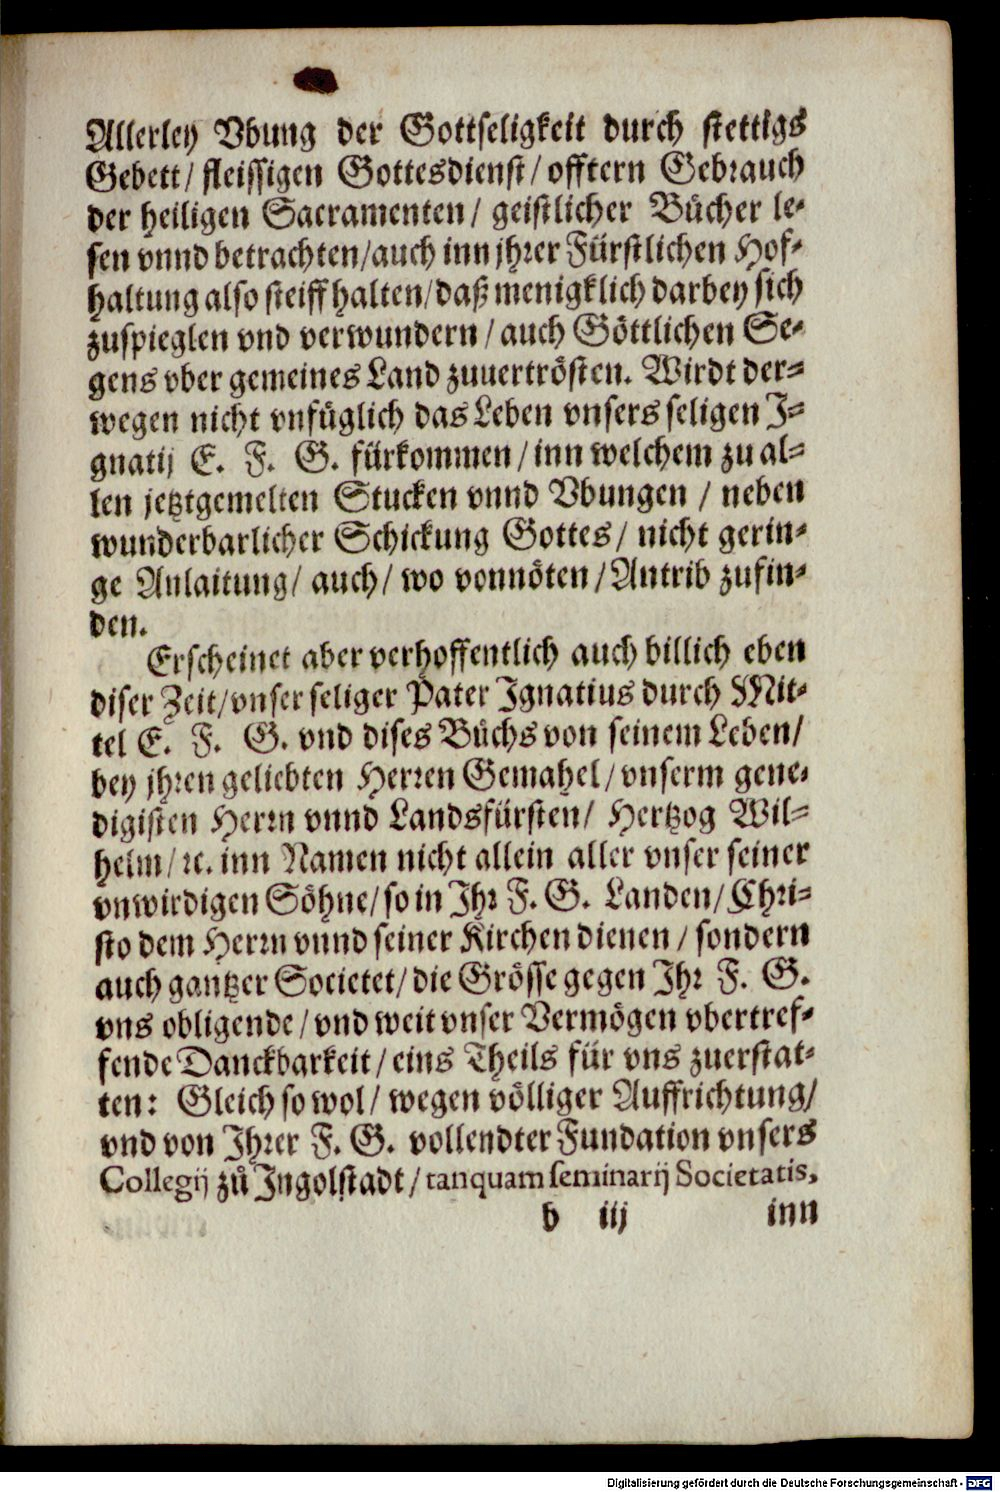 Allerley Vbung der Gottseligkeit durch stettigs
Gebett/ fleissigen Gottesdienst/ offtern Gebrauch
der heiligen Sacramenten/ geistlicher Bücher le-
sen vnnd betrachten/auch inn jhrer Fürstlichen Hof-
haltung also steiff halten/daß menigklich darbey sich
zuspieglen vnd verwundern/auch Göttlichen Se-
gens vber gemeines Land zuuertrösten. Wirdt der-
wegen nicht vnfüglich das Leben vnsers seligen I-
gnatij E. F. G. fürkommen/inn welchem zu al-
len jetztgemelten Stucken vnnd Vbungen / neben
wunderbarlicher Schickung Gottes/ nicht gerin-
ge Anlaitung/ auch/ wo vonnöten/Antrib zufin-
den.
Erscheinet aber verhoffentlich auch billich eben
diser Zeit/vnser seliger Pater Ignatius durch Mit-
tel E. F. G. vnd dises Büchs von seinem Leben/
bey jhren geliebten Herren Gemahel/vnserm gene-
digisten Herrn vnnd Landsfürsten/ Hertzog Wil-
helm/ꝛc. inn Namen nicht allein aller vnser seiner
vnwirdigen Söhne/so in Ihr F. G. Landen/Chri-
sto dem Herrn vnnd seiner Kirchen dienen/sondern
auch gantzer Societet/die Grösse gegen Ihr F. G.
vns obligende/vnd weit vnser Vermögen vbertref-
fende Danckbarkeit/eins Theils für vns zuerstat-
ten: Gleich so wol/ wegen völliger Auffrichtung/
vnd von Ihrer F. G. vollendter Fundation vnsers
Collegij zů Ingolstadt/tanquam seminarij Societatis,
b iij inn
Digitalisierung gefördert durch die Deutsche Forschungsgemeinschaft - DFG